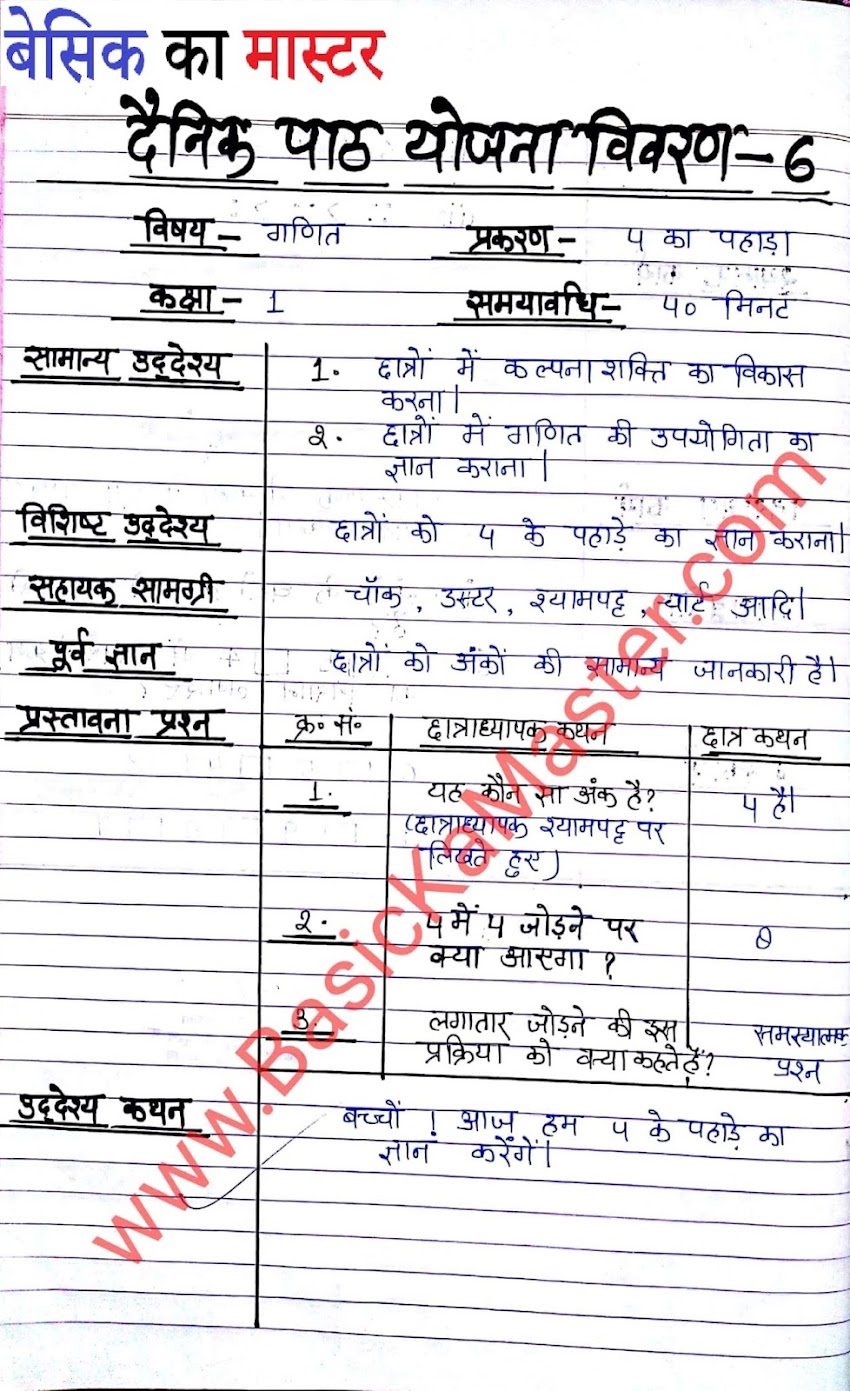 बेसिक का मास्टर
दैनिक पाठ योजना विवरण - 6
विषय - गणित प्रकरण - 4 का पहाड़ा
कक्षा - 1 समयावधि - 40 मिनट
सामान्य उद्देश्य 1. छात्रों में कल्पना शक्ति का विकास
करना।
२. छात्रों में गणित की उपयोगिता का
ज्ञान कराना।
विशिष्ट उद्देश्य छात्रों को 4 के पहाड़े का ज्ञान कराना।
सहायक सामग्री चॉक, डस्टर, श्यामपट्ट, चार्ट आदि।
पूर्व ज्ञान छात्रों को अंकों की सामान्य जानकारी है।
प्रस्तावना प्रश्न क्र० सं० छात्राध्यापक कथन छात्र कथन
1. यह कौन सा अंक है? 4 है।
(छात्राध्यापक श्यामपट्ट पर
लिखते हुए)
२. 4 में 4 जोड़ने पर 8
क्या आएगा ?
3. लगातार जोड़ने की इस समस्यात्मक
प्रक्रिया को क्या कहते हैं? प्रश्न
उद्देश्य कथन बच्चों ! आज हम 4 के पहाड़े का
ज्ञान करेंगें।
www.BasicKaMaster.com